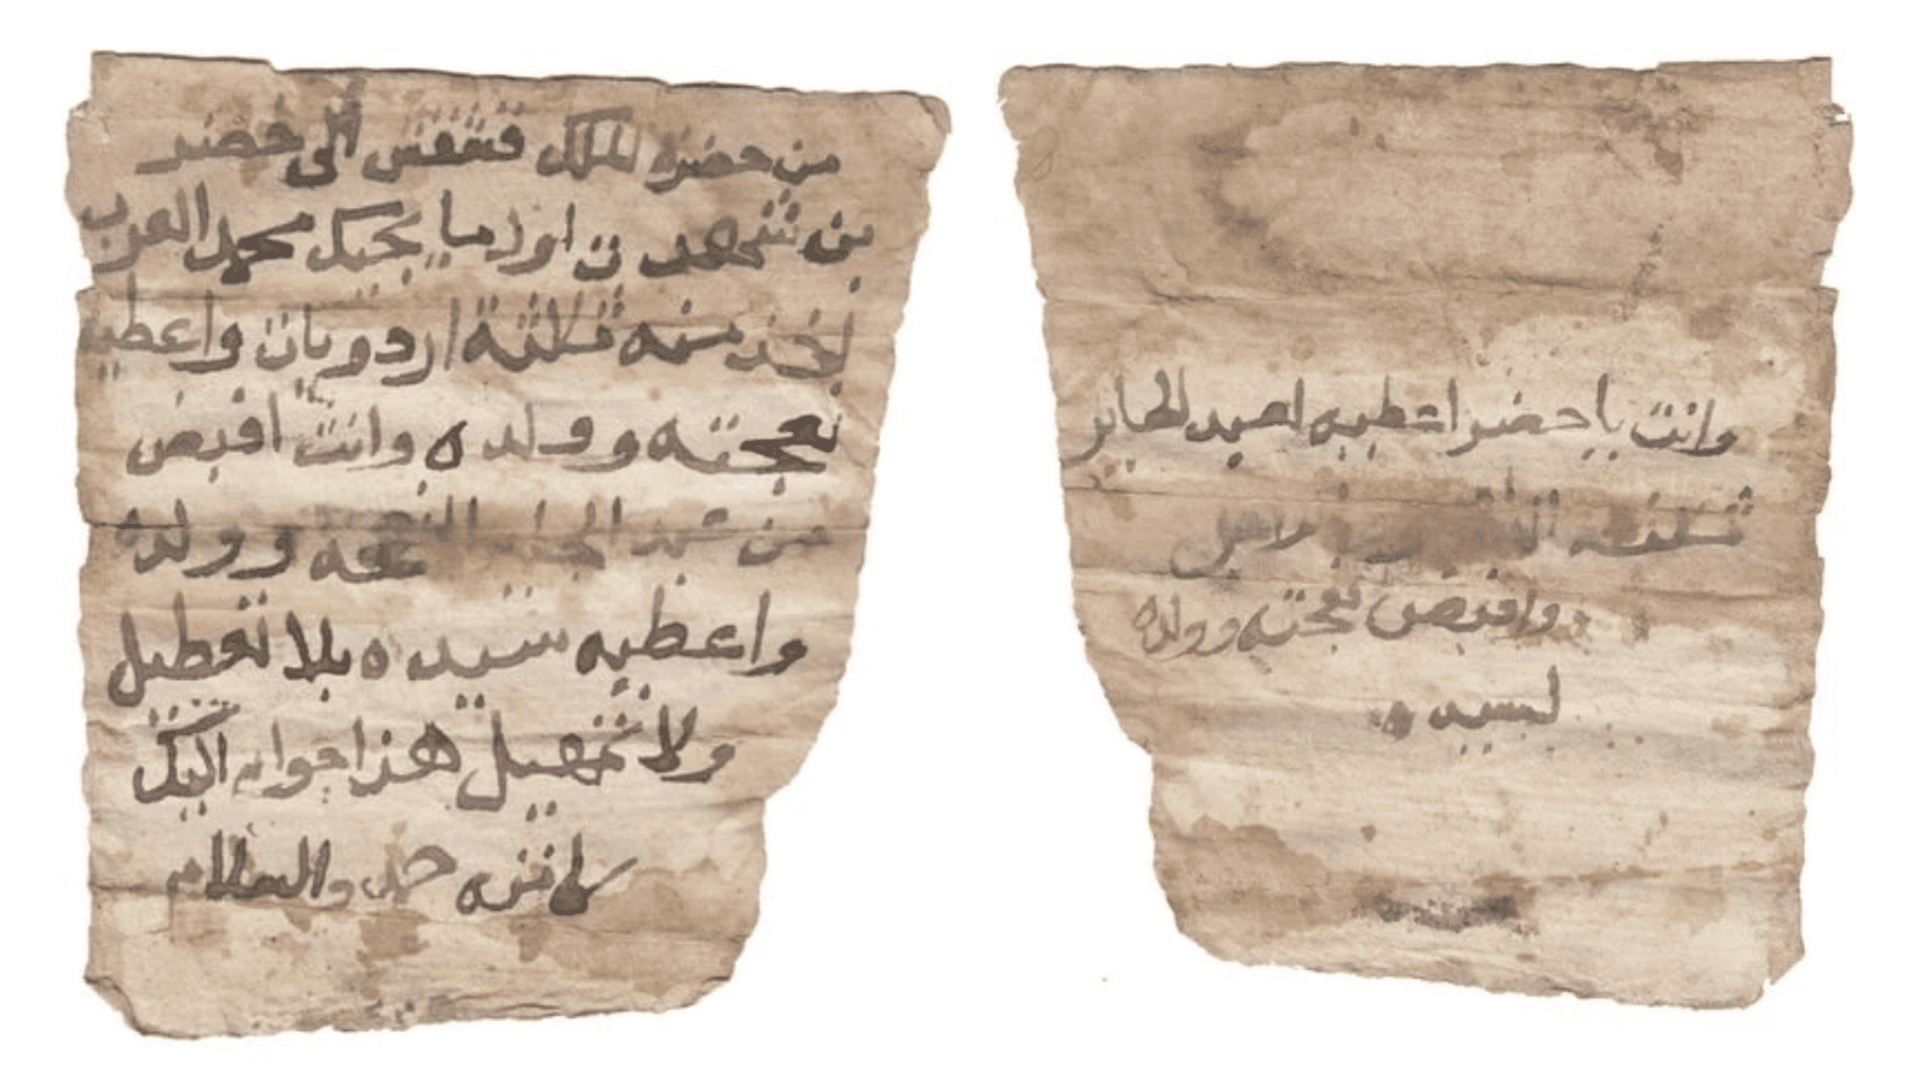 من حضرة الملك قشقش الى خضر
بن شهدت اول ما يجيك محمد العرب
لخذ منه ثلاثة اردويات واعطيه
نعجته وولده وانت اقبض
من عبد الجابر النعجه وولده
واعطيه سيده بلا تعطيل
ولا تمهيل هذا جوابي اليك
كاتبه حمد والسلام
وانت يا خضر اعطيه لعبد الجابر
ثلثه
واقبض نعجته وولده
لسيده